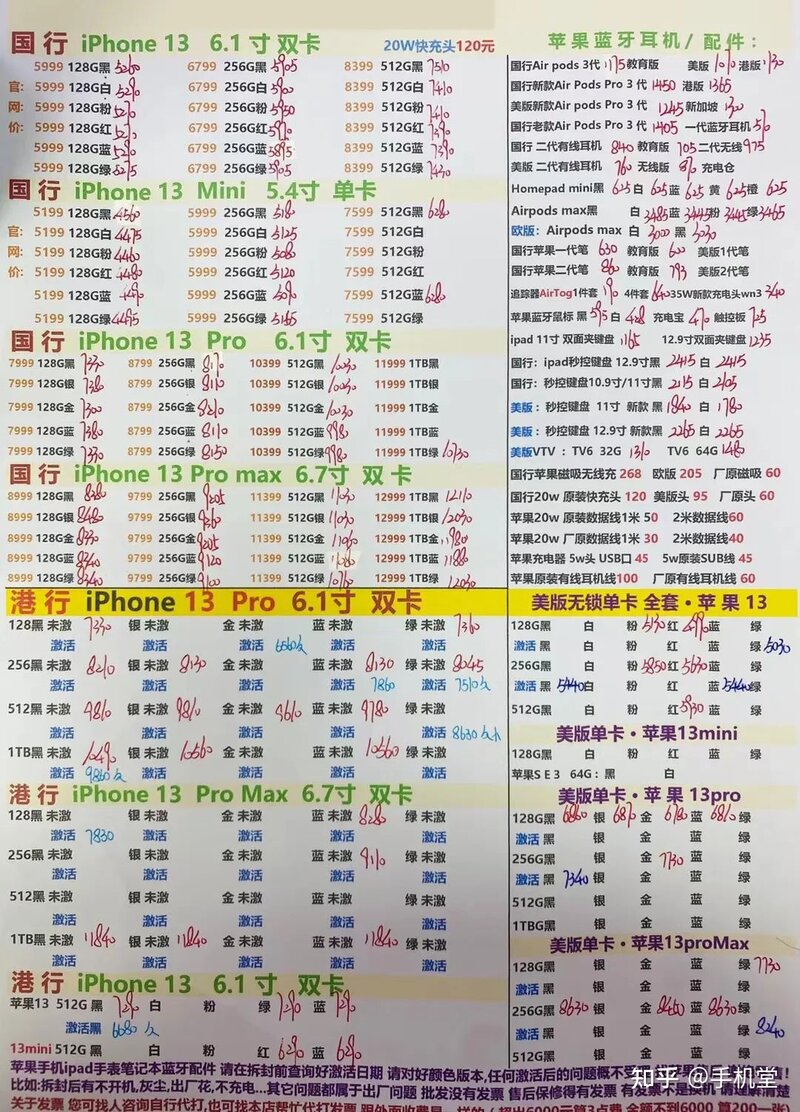 国行 iPhone 13 6.1寸双卡 20W快充头120元
5999 128G黑 5260 6799 256G黑 5905 8399 512G黑 7510
官: 5999 128G白 5290 6799 256G白 5900 8399 512G白 7410
网: 5999 128G粉 6799 256G粉 5950 8399 512G粉 7410
价: 5999 128G红 6799 256G红 8399 512G红
5999 128G蓝 6799 256G蓝 5895 8399 512G蓝
5999 128G绿 5275 6799 256G绿 5905 8399 512G绿 7430
国行 iPhone 13 Mini 5.4寸 单卡
5199 128G黑 4560 5999 256G黑 5180 7599 512G黑 6280
官: 5199 128G白 4475 5999 256G白 5125 7599 512G白
网: 5199 128G粉 4460 5999 256G粉 5080 7599 512G粉
价: 5199 128G红 4480 5999 256G红 5120 7599 512G红
5199 128G蓝 4490 5999 256G蓝 5090 7599 512G蓝 6280
5199 128G绿 4495 5999 256G绿 5165 7599 512G绿
国行 iPhone 13 Pro 6.1寸 双卡
7999 128G黑 7330 8799 256G黑 8170 10399 512G黑 10030 11999 1TB黑
7999 128G银 7380 8799 256G银 8110 10399 512G银 10030 11999 1TB银
7999 128G金 7300 8799 256G金 8210 10399 512G金 10030 11999 1TB金
7999 128G蓝 7380 8799 256G蓝 8110 10399 512G蓝 9980 11999 1TB蓝
7999 128G绿 7370 8799 256G绿 8150 10399 512G绿 9980 11999 1TB绿 10730
国行 iPhone 13 Pro max 6.7寸 双卡
8999 128G黑 8380 9799 256G黑 9205 11399 512G黑 11030 12999 1TB黑 12110
8999 128G银 8480 9799 256G银 9260 11399 512G银 11030 12999 1TB银 12030
8999 128G金 8330 9799 256G金 9205 11399 512G金 11030 12999 1TB金 11980
8999 128G蓝 8340 9799 256G蓝 9120 11399 512G蓝 12999 1TB蓝 11880
8999 128G绿 8340 9799 256G绿 9100 11399 512G绿 10760 12999 1TB绿 12030
港行 iPhone 13 Pro 6.1寸 双卡
128黑 未激 7330 银 未激 金 未激 蓝 未激 绿 未激 7360
激活 激活 激活 6560欠 激活 激活
256黑 未激 8210 银 未激 8130 金 未激 蓝 未激 8130 绿 未激 8045
激活 激活 激活 激活 7860 激活 7510欠
512黑 未激 9810 银 未激 9810 金 未激 9610 蓝 未激 9780 绿 未激
激活 激活 激活 激活 激活 8630
1TB黑 未激 10490 银 未激 10560 金 未激 蓝 未激 10560 绿 未激
激活 9860欠 激活 激活 激活 激活
港行 iPhone 13 Pro Max 6.7寸 双卡
128黑 未激 银 未激 金 未激 蓝 未激 8280 绿 未激
激活 7830 激活 激活 激活 激活
256黑 未激 银 未激 金 未激 蓝 未激 9110 绿 未激
激活 激活 激活 激活 激活
512黑 未激 银 未激 金 未激 蓝 未激 绿 未激
激活 激活 激活 激活 激活
1TB黑 未激 11840 银 未激 11840 金 未激 蓝 未激 11840 绿 未激
激活 激活 激活 激活 激活
港行 iPhone 13 6.1寸 双卡
苹果13 512G 黑 7290 白 粉 绿 7290 蓝 7290
激活黑 6680欠
13mini 512G 黑 白 粉 红 6290 蓝 6290
苹果蓝牙耳机/ 配件:
国行Air pods 3代 1175 教育版 美版 1010 港版 1130
国行新款Air Pods Pro 3 代 1450 港版 1365
美版新款Air Pods Pro 3 代 1245 新加坡
国行老款Air Pods Pro 3 代 1405 一代蓝牙耳机 510
国行 二代有线耳机 840 教育版 705 二代无线 975
美版 二代有线耳机 760 无线版 充电仓
Homepad mini黑 625 白 625 蓝 625 黄 625 橙 625
Airpods max黑 白 3485 蓝 3445 粉 3445 绿 3465
欧版: Airpods max 白 3000 黑 3030
国行苹果一代笔 630 教育版 600 美版1代笔
国行苹果二代笔 860 教育版 793 美版2代笔
追踪器AirTog1件套 190 4件套 640 35W新款充电头wn3 340
苹果蓝牙鼠标 黑 595 白 428 充电宝 470 触控板 725
ipad 11寸 双面夹键盘 1165 12.9寸双面夹键盘 1235
国行: ipad秒控键盘 12.9寸黑 2415 白 2415
国行: 秒控键盘10.9寸/11寸黑 2115 白 2105
美版: 秒控键盘 11寸 新款 黑 1840 白 1780
美版: 秒控键盘 12.9寸 新款黑 2265 白 2265
美版VTV : TV6 32G 1310 TV6 64G 1480
国行苹果磁吸无线充 268 欧版 205 厂原磁吸 60
国行20w 原装快充头 120 美版头 95 厂原头 60
苹果20w 原装数据线1米 50 2米数据线60
苹果20w 厂原数据线1米 30 2米数据线40
苹果充电器 5w头 USB口 45 5w原装SUB线 45
苹果原装有线耳机线100 厂原有线耳机线 60
美版无锁单卡 全套·苹果 13
128G黑 白 粉 5130 红 4990 蓝 绿
激活 黑 白 粉 红 蓝 绿 5030
256G黑 白 粉 5850 红 5630 蓝 绿
激活 黑 5440 白 粉 红 蓝 5440 绿
512G黑 白 粉 红 5930 蓝 绿
美版单卡·苹果13mini
128G黑 白 粉 红 蓝 绿
苹果S E 3 64G: 黑 白
美版单卡·苹果13pro
128G黑 6860 银 6870 金 6780 蓝 6810 绿
激活 黑 银 金 蓝 绿
256G黑 银 金 7730 蓝 绿
激活 黑 7340 银 金 蓝 绿
512G黑 银 金 蓝 绿
1TBG黑 银 金 蓝 绿
美版单卡·苹果13proMax
128G黑 银 金 蓝 绿 7730
激活 黑 银 金 蓝 绿
256G黑 8630 银 金 8450 蓝 8630 绿
激活 黑 银 金 蓝 绿 8240
512G黑 银 金 蓝 绿
苹果手机ipad手表笔记本蓝牙配件 请在拆封前查询好激活日期 请对好颜色版本,任何激活后的问题概不受
比如:拆封后有不开机,灰尘,出厂花,不充电...其它问题都属于出厂问题 批发没有发票 售后保修得有发票 有发票不是换机 请理解清楚
关于发票 您可找人咨询自行代打,也可找本店帮忙代打发票
知乎 @手机堂